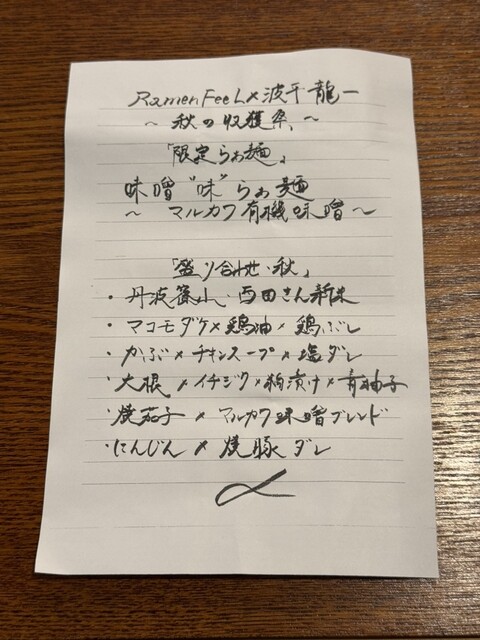 Ramen FeeL×波平龍一
～ 秋の収穫祭、～
「限定らぁ麺」
味噌"味"らぁ麺
～ マルカワ有機味噌～
「盛り合わせ・秋」
・丹波篠山・西田さん新米
・マコモダケ×鶏油×鶏ぶし
・かぶ×チキンスープ×塩ダレ
・大根×イチジク×粕漬け×青柚子
・焼茄子×マルカワ味噌ブレンド
・にんじん×焼豚ダレ